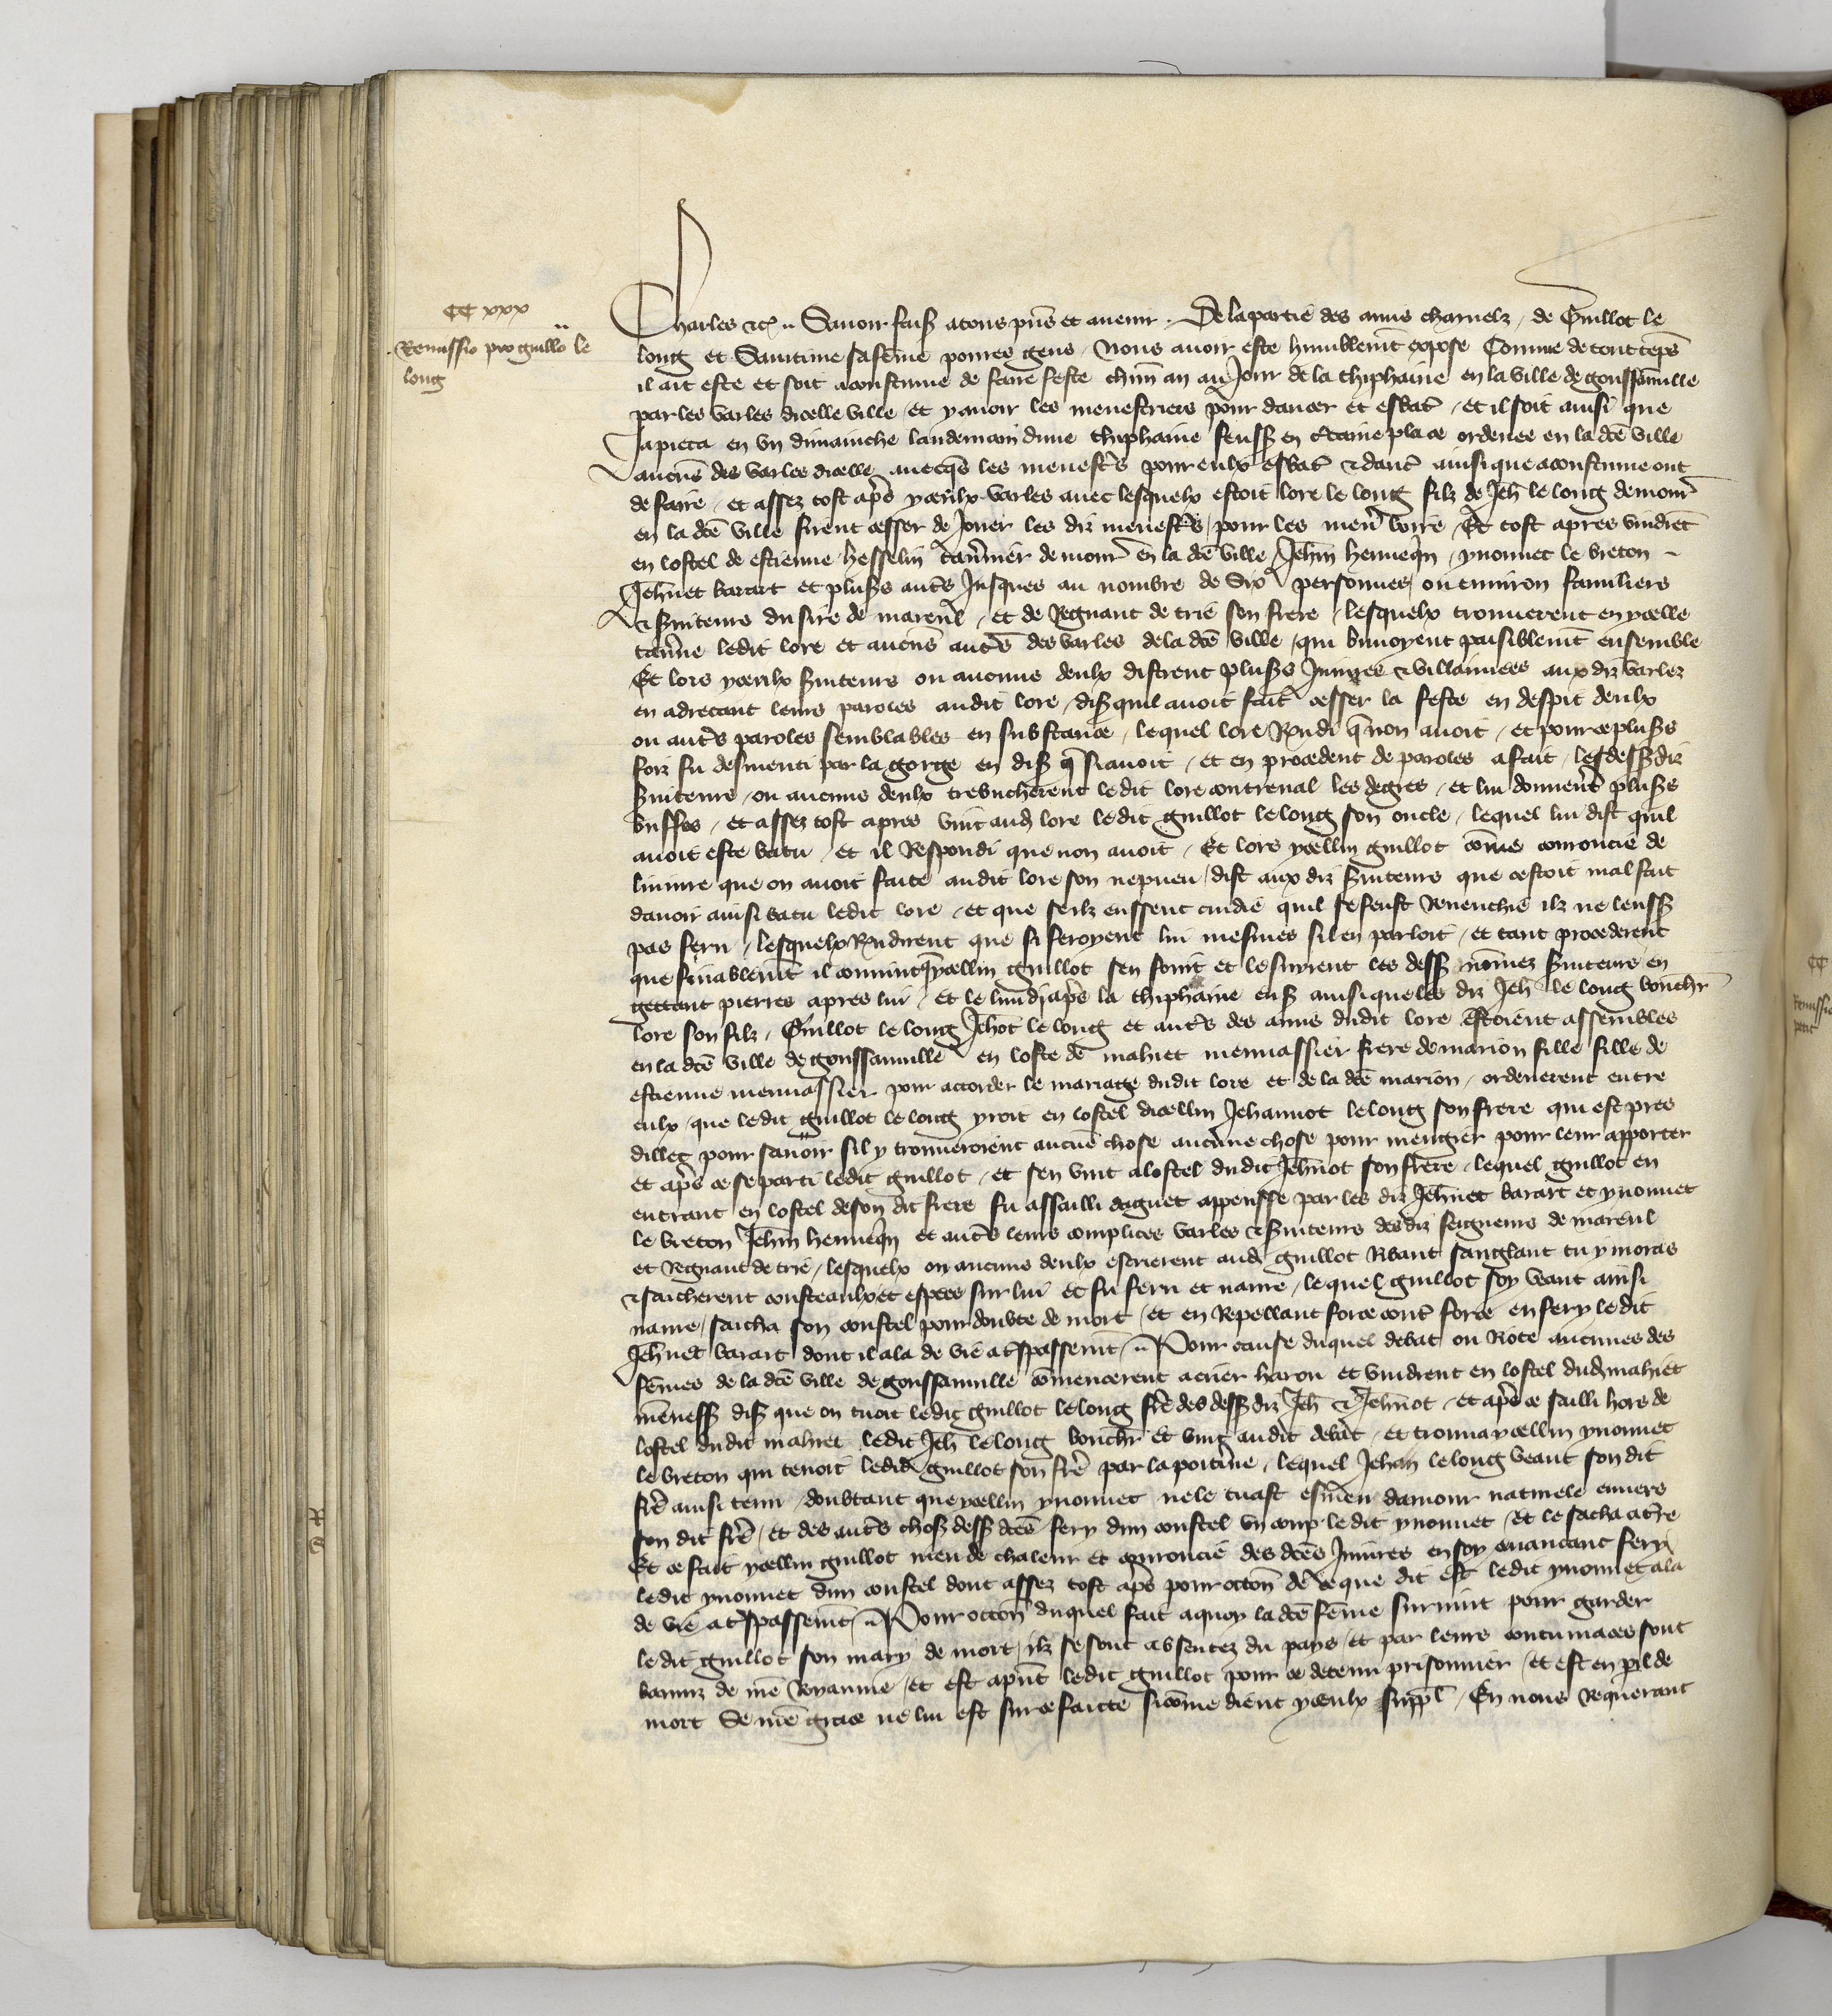 CC xxx
Remissio pro guillo le
long
Charles etc. Savoir fais. a tous pns et avenir. De la partie des amis charnelz, de Guillot le
long et sa feme povres gens, Nous avoir este humblemt expose Comme de tout teps
il ait este et soit acoustume de faire feste chun an au Jour de la thiphaine en la ville de goussainville
par les varles dicelle ville, et y avoir les menestriers pour dancer et esbat, et il soit ainsi que
Ja pieca en un dimainche landemain dune thiphaine feuss en ctaine place ordenee en la dce ville
aucuns des varles dicelle avecqs les menestrs pour eulx esbat et danc ainsi que acoustume ont
de faire, et assez tost aprs yceulx varles avec lesquelx estoit lore le long filz de Jeh le long demour
en la dce ville firent cesser de Jouer les diz menestrs, pour les mener boire, Et tost apres vindret
en lostel de estienne hesselin tavnier demour en la dce ville Jehin hennequin, yvonnet le breton
Jehnet barart et pluss autrs Jusques au nombre de Six personnes, ou environ familiers
et Sviteurs du sire de mareul, et de Regnaut de trie son frere, lesquelx trouverent en ycelle
tavne ledit lore et aucuns autrs des varles de la dce ville, qui buvoyent paisiblemt ensemble
Et lors yceulx Sviteurs ou aucuns deulx distrent pluss Injures et villainnies aux diz varlez
en adrecant leurs paroles audit lore, dis quil avoit fait cesser la feste en despit deulx
ou autrs paroles semblables en substance, lequel lore Rendi q non avoit, et pour ce pluss
foiz fu desmenti par la gorge en dis q si avoit, et en procedent de paroles a fait, les dess diz
Sviteurs, ou aucuns deulx tresbucherent le dit lore contreval les degres, et lui donnert pluss
buffes, et assez tost apres vint aud lore ledit guillot le long son oncle, lequel lui dist quil
avoit este batu, et il Respondi que non avoit, Et lors ycellui guillot come courroucie de
linjure que on avoit faite audit lore son nepveu, dist aux diz Sviteurs que cestoit mal fait
davoir ainsi batu ledit lore, et que se ilz eussent cuidie quil se feust Revenchie ilz ne leuss
pas feru, lesquelx Rndirent que si feroyent lui mesmes sil en parloit, et tant procederent
que finablemt il convint q ycellui guillot sen fouit et le suirent les dess nomez Sviteurs en
gettant pierres apres lui, Et le lundi aprs la thiphaine ens ainsi que les diz Jeh le long bouchr
lore son filz, Guillot le long Jehot le long et autrs des amis dudit lore estoient assembles
en la dce ville de goussainville en lostel de mahiet menuassier frere de marion fille fille de
estienne menuassier pour accorder le mariage dudit lore et de la dce marion, ordenerent entre
eulx, que ledit guillot le long yroit en lostel dicellui Jehannot le long son frere qui est pres
dillec pour savoir sil y trouveroient aucune chose aucune chose pour mengier pour leur apporter
et aprs ce se parti ledit guillot, et sen vint a lostel dudit Jehnot son frere, lequel guillot en
entrant en lostel de son dit frere fu assailli daguet appensse par les diz Jehnet barart et yvonnet
le breton Jehin hennequin et autrs leurs complices varles et Sviteurs des diz seigneurs de mareul
et Regnaut de trie, lesquelx ou aucuns deulx escrierent aud guillot Ribaut sanglant tu y moras
et saicherent cousteaulx et espees sur lui et fu feru et navre, lequel guillot soy veant ainsi
navre, saicha son coustel pour doubte de mort, et en Repellant force cont force en fery le dit
Jehnet barart dont il ala de vie a trspassemt, Pour cause duquel debat ou Riote aucunes des
femes de la dce ville de goussainville comencerent a crier harou et vindrent en lostel dud mahiet
menuass dis que on tuoit ledit guillot le long fre des dess diz Jeh et Jehnot, et aprs ce failli hors de
lostel dudit mahiet ledit Jeh le long bouchr et vint audit debat, et trouva ycellui yvonnet
le breton qui tenoit ledit guillot son fre par la poitrine, lequel Jehan le long veant son dit
fre ainsi tenu, doubtant que ycellui yvonnet ne le tuast esmeu damour naturele envers
son dit fre, et des autrs chos dess dces fery dun coustel un coup ledit yvonnet, Et le sacha a tre
Et ce fait ycellui guillot meu de chaleur et courroucie des dces Injures en soy avancant fery
ledit yvonnet dun coustel dont assez tost aprs pour occon de ce que dit est ledit yvonnet ala
de vie a trspassemt, Pour occon duquel fait a quoy la dce feme survint pour garder
ledit guillot son mary de mort, ilz se sont absentez du pays, et par leurs contumaces sont
banniz de nre Royaume, et est apnt ledit guillot pour ce detenu prisonnier, et est en pil de
mort Se nre grace ne lui est sur ce faicte sicome dient yceulx suppl, En nous requerant